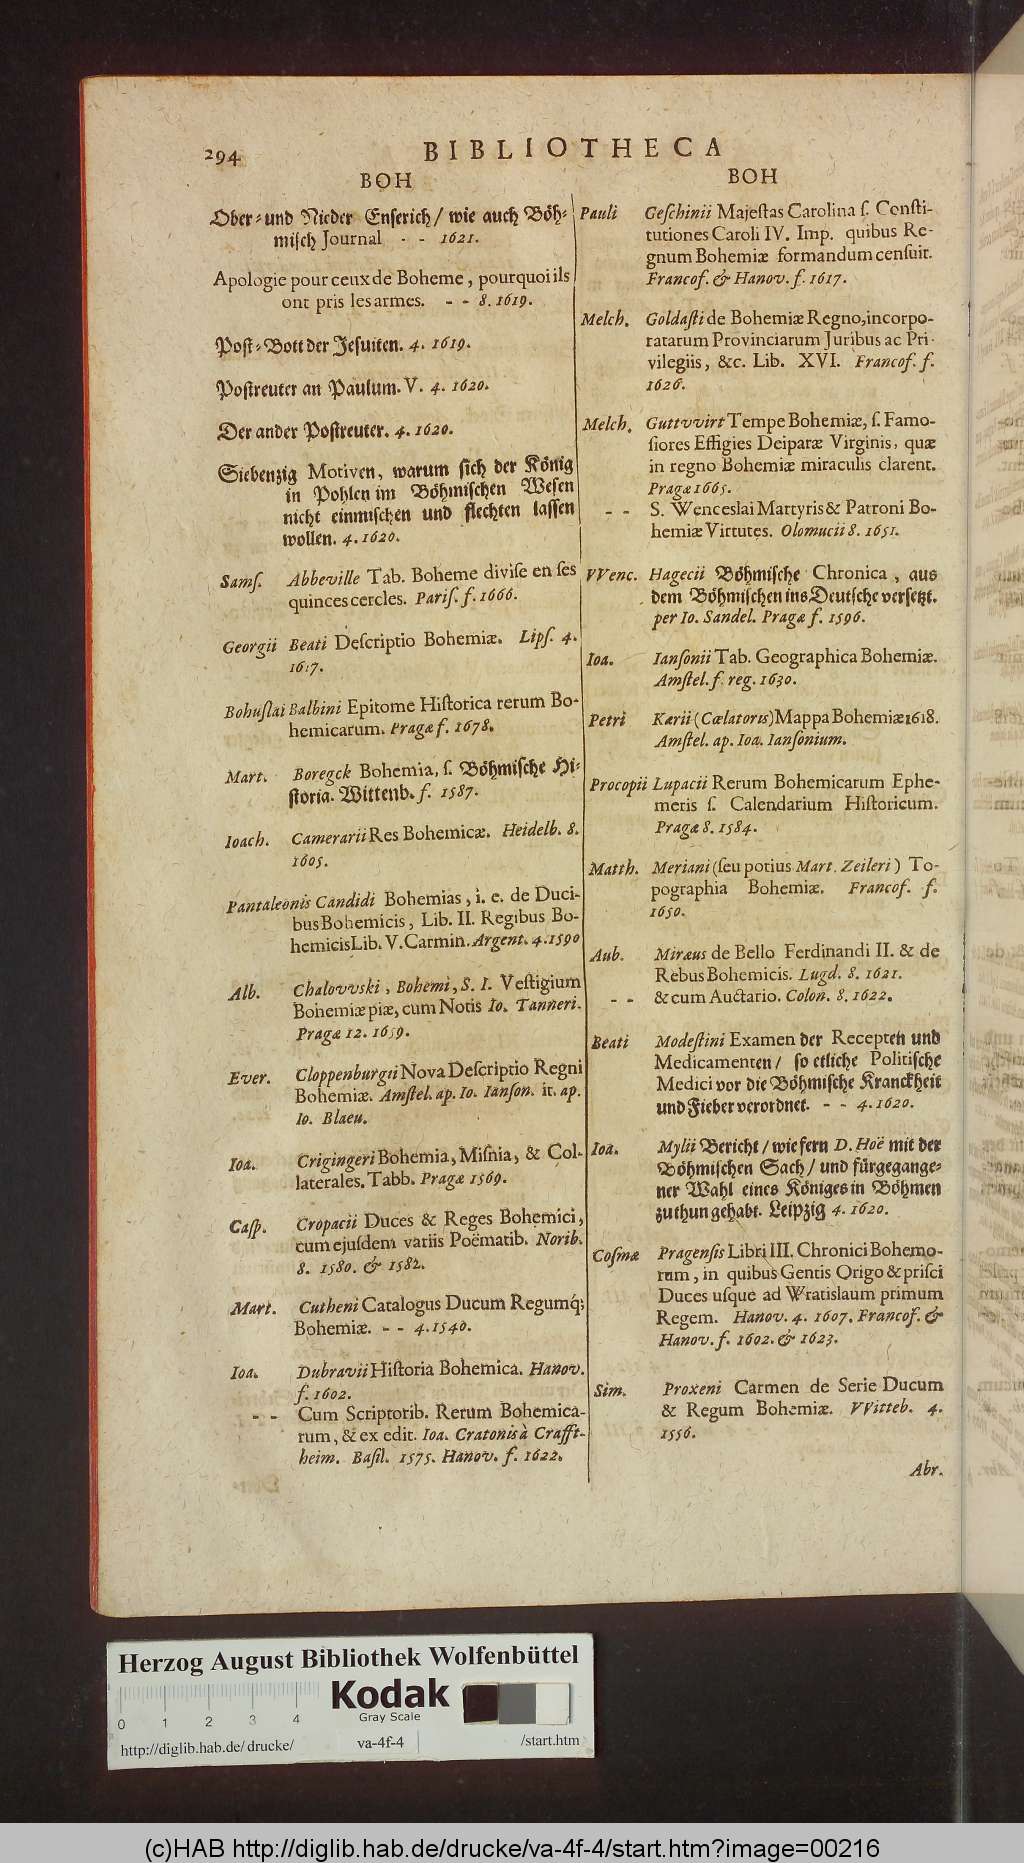 294
BIBLIOTHECA
BOH
Ober⸗und Nieder Enserich/ wie auch Böh⸗
misch Journal - - 1621.
Apologie pour ceux de Boheme, pourquoi ils
ont pris les armes. - - 8. 1619.
Post⸗Bott der Jesuiten. 4. 1619.
Postreuter an Paulum. V. 4. 1620.
Der ander Postreuter. 4. 1620.
Siebenzig Motiven, warum sich der König
in Pohlen im Böhmischen Wesen
nicht einmischen und flechten lassen
wollen. 4. 1620.
Samſ. Abbeville Tab. Boheme diviſe en ſes
quinces cercles. Pariſ. f. 1666.
Georgii Beati Deſcriptio Bohemiæ. Lipſ. 4.
1617.
Bohuſlai Balbini Epitome Hiſtorica rerum Bo-
hemicarum. Pragæ f. 1678.
Mart. Boregck Bohemia, ſ. Böhmische Hi⸗
storia. Wittenb. f. 1587.
Ioach. Camerarii Res Bohemicæ. Heidelb. 8.
1605.
Pantaleonis Candidi Bohemias, i. e. de Duci-
bus Bohemicis, Lib. II. Regibus Bo-
hemicis Lib. V. Carmin. Argent. 4. 1590
Alb. Chalovvski, Bohemi, S. I. Veſtigium
Bohemiæ piæ, cum Notis Io. Tanneri.
Pragæ 12. 1659.
Ever. Cloppenburgii Nova Deſcriptio Regni
Bohemiæ. Amſtel. ap. Io. Ianſon. it. ap.
Io. Blaeu.
Ioa. Crigingeri Bohemia, Miſnia, & Col-
laterales. Tabb. Pragæ 1569.
Caſp. Cropacii Duces & Reges Bohemici,
cum ejuſdem variis Poëmatib. Norib.
8. 1580. & 1582.
Mart. Cutheni Catalogus Ducum Regumq́;
Bohemiæ. - - 4. 1540.
Ioa. Dubravii Hiſtoria Bohemica. Hanov.
f. 1602.
- - Cum Scriptorib. Rerum Bohemica-
rum, & ex edit. Ioa. Cratonis à Crafft-
heim. Baſil. 1575. Hanov. f. 1622.
BOH
Pauli Geſchinii Majeſtas Carolina ſ. Conſti-
tutiones Caroli IV. Imp. quibus Re-
gnum Bohemiæ formandum cenſuit.
Francof. & Hanov. f. 1617.
Melch. Goldaſti de Bohemiæ Regno, incorpo-
ratarum Provinciarum Juribus ac Pri-
vilegiis, &c. Lib. XVI. Francof. f.
1626.
Melch. Guttvvirt Tempe Bohemiæ, ſ. Famo-
ſiores Effigies Deiparæ Virginis, quæ
in regno Bohemiæ miraculis clarent.
Pragæ 1665.
- - S. Wenceslai Martyris & Patroni Bo-
hemiæ Virtutes. Olomucii 8. 1651.
VVenc. Hagecii Böhmische Chronica, aus
dem Böhmischen ins Deutsche versetzt.
per Io. Sandel. Pragæ f. 1596.
Ioa. Ianſonii Tab. Geographica Bohemiæ.
Amſtel. f. reg. 1630.
Petri Kærii (Cœlatoris) Mappa Bohemiæ 1618.
Amſtel. ap. Ioa. Ianſonium.
Procopii Lupacii Rerum Bohemicarum Ephe-
meris ſ. Calendarium Hiſtoricum.
Pragæ 8. 1584.
Matth. Meriani (ſeu potius Mart. Zeileri) To-
pographia Bohemiæ. Francof. f.
1650.
Aub. Miræus de Bello Ferdinandi II. & de
Rebus Bohemicis. Lugd. 8. 1621.
- - & cum Auctario. Colon. 8. 1622.
Beati Modeſtini Examen der Recepten und
Medicamenten/ so etliche Politische
Medici vor die Böhmische Kranckheit
und Fieber verordnet. - - 4. 1620.
Ioa. Mylii Bericht/ wie fern D. Hoë mit der
Böhmischen Sach/ und fürgegange⸗
ner Wahl eines Königes in Böhmen
zu thun gehabt. Leipzig 4. 1620.
Coſmæ Pragenſis Libri III. Chronici Bohemo-
rum, in quibus Gentis Origo & priſci
Duces uſque ad Wratislaum primum
Regem. Hanov. 4. 1607. Francof. &
Hanov. f. 1602. & 1623.
Sim. Proxeni Carmen de Serie Ducum
& Regum Bohemiæ. VVitteb. 4.
1556.
Abr.
Herzog August Bibliothek Wolfenbüttel
Kodak
Gray Scale
0 1 2 3 4
http://diglib.hab.de/drucke/ va-4f-4 /start.htm
(c)HAB http://diglib.hab.de/drucke/va-4f-4/start.htm?image=00216